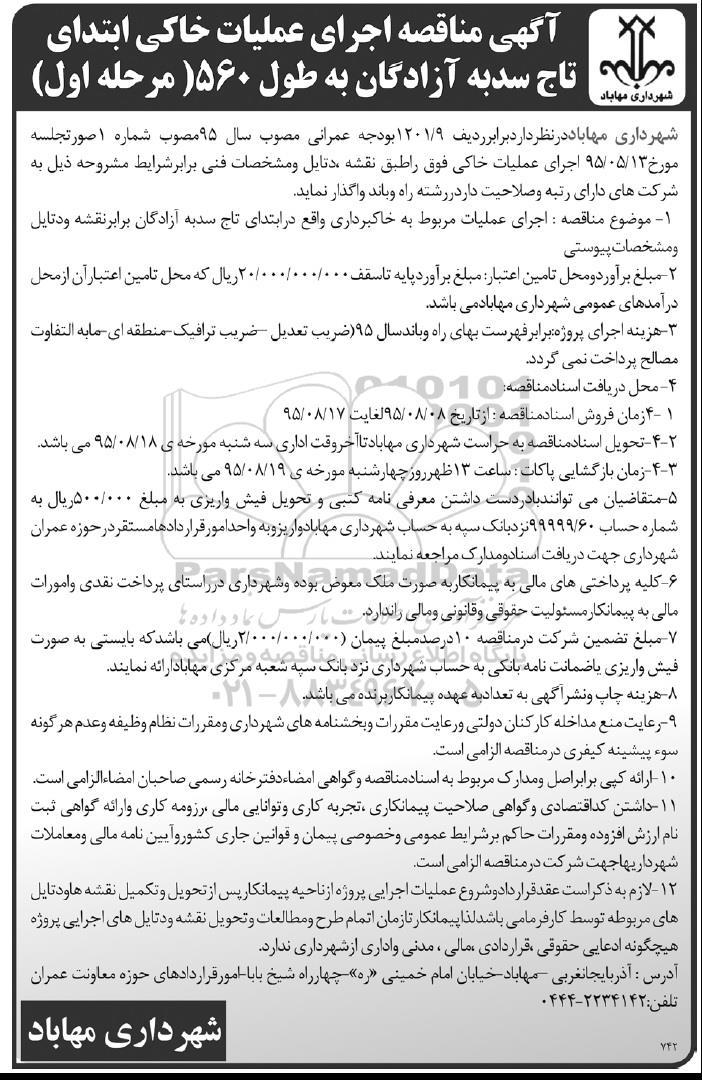 آگهی مناقصه اجرای عملیات خاکی ابتدای
تاج سدبه آزادگان به طول ۵۶۰( مرحله اول)
شهرداری مهاباد
شهرداری مهاباددرنظرداردبرابرردیف ۱۲۰۱/۹بودجه عمرانی مصوب سال ۹۵مصوب شماره ۱صورتجلسه
مورخ۹۵/۰۵/۱۳ اجرای عملیات خاکی فوق راطبق نقشه ،دتایل ومشخصات فنی برابرشرایط مشروحه ذیل به
شرکت های دارای رتبه وصلاحیت داردررشته راه وباند واگذار نماید.
۱- موضوع مناقصه : اجرای عملیات مربوط به خاکبرداری واقع درابتدای تاج سدبه آزادگان برابرنقشه ودتایل
ومشخصات‌پیوستی
۲-مبلغ برآوردومحل تامین اعتبار: مبلغ برآوردپایه تاسقف۲۰/۰۰۰/۰۰۰/۰۰۰ریال که محل تامین اعتبارآن ازمحل
درآمدهای عمومی شهرداری مهابادمی باشد.
۳-هزینه اجرای پروژه:برابرفهرست بهای راه وباندسال ۹۵(ضریب تعدیل –ضریب ترافیک-منطقه ای-مابه التفاوت
مصالح پرداخت نمی گردد.
۴- محل دریافت اسنادمناقصه:
۱ -۴زمان فروش اسنادمناقصه : ازتاریخ ۹۵/۰۸/۰۸لغایت ۹۵/۰۸/۱۷
۴-۲-تحویل اسنادمناقصه به حراست شهرداری مهابادتاآخروقت اداری سه شنبه مورخه ی ۹۵/۰۸/۱۸ می باشد.
۴-۳-زمان بازگشایی پاکات : ساعت ۱۳ظهرروزچهارشنبه مورخه ی ۹۵/۰۸/۱۹ می باشد.
۵-متقاضیان می توانندبادردست داشتن معرفی نامه کتبی و تحویل فیش واریزی به مبلغ ۵۰۰/۰۰۰ریال به
شماره حساب ۹۹۹۹۹/۶۰نزدبانک سپه به حساب شهرداری مهابادواریزوبه واحدامورقراردادهامستقردرحوزه عمران
شهرداری جهت دریافت اسنادومدارک مراجعه نمایند.
۶-کلیه پرداختی های مالی به پیمانکاربه صورت ملک معوض بوده وشهرداری درراستای پرداخت نقدی وامورات
مالی به پیمانکارمسئولیت حقوقی وقانونی ومالی راندارد.
۷-مبلغ تضمین شرکت درمناقصه ۱۰درصدمبلغ پیمان (۲/۰۰۰/۰۰۰/۰۰۰ریال)می باشدکه بایستی به صورت
فیش واریزی یاضمانت نامه بانکی به حساب شهرداری نزد بانک سپه شعبه مرکزی مهابادارائه نمایند.
۸-هزینه چاپ ونشرآگهی به تعدادبه عهده پیمانکاربرنده می باشد.
۹-رعایت منع مداخله کارکنان دولتی ورعایت مقررات وبخشنامه های شهرداری ومقررات نظام وظیفه وعدم هرگونه
سوء پیشینه کیفری درمناقصه الزامی است.
۱۰-ارائه کپی برابراصل ومدارک مربوط به اسنادمناقصه وگواهی امضاءدفترخانه رسمی صاحبان امضاءالزامی است.
۱۱-داشتن کداقتصادی وگواهی صلاحیت پیمانکاری ،تجربه کاری وتوانایی مالی ،رزومه کاری وارائه گواهی ثبت
نام ارزش افزوده ومقررات حاکم برشرایط عمومی وخصوصی پیمان و قوانین جاری کشوروآیین نامه مالی ومعاملات
شهرداریهاجهت شرکت درمناقصه الزامی است.
۱۲-لازم به ذکراست عقدقراردادوشروع عملیات اجرایی پروژه ازناحیه پیمانکارپس ازتحویل وتکمیل نقشه هاودتایل
های مربوطه توسط کارفرمامی باشدلذاپیمانکارتازمان اتمام طرح ومطالعات وتحویل نقشه ودتایل های اجرایی پروژه
هیچگونه ادعایی حقوقی ،قراردادی ،مالی ، مدنی واداری ازشهرداری ندارد.
آدرس : آذربایجانغربی –مهاباد-خیابان امام خمینی «ره»-چهارراه شیخ بابا-امورقراردادهای حوزه معاونت عمران
تلفن:۰۴۴۴-۲۲۳۴۱۴۲
شهرداری مهاباد
۷۴۲
ParsNamadData
پایگاه اطلاع رسانی مناقصه و مزایده
۰۲۱-۸۸۳۴۹۶۷۰-۵